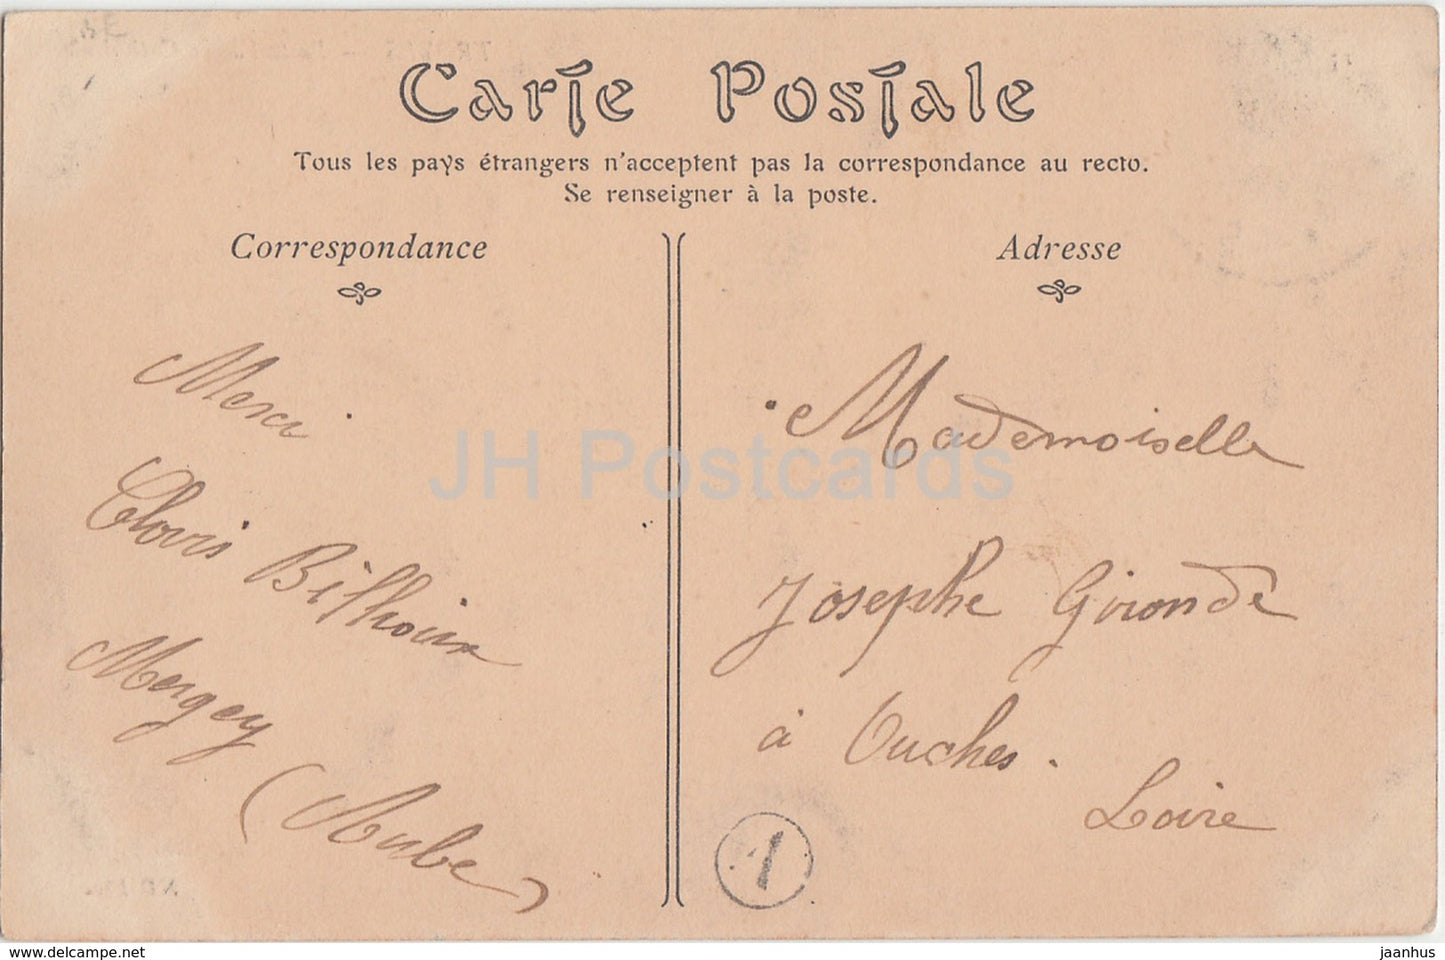 Carte Postale
Tous les pays étrangers n'acceptent pas la correspondance au recto.
Se renseigner à la poste.
Correspondance
Merci
Clovis
Mergey
(Aube)
Adresse
Mademoiselle
Josephe Gironde
à Ouches.
Loire
1
JH Postcards
www.delcampe.net
jaanhus